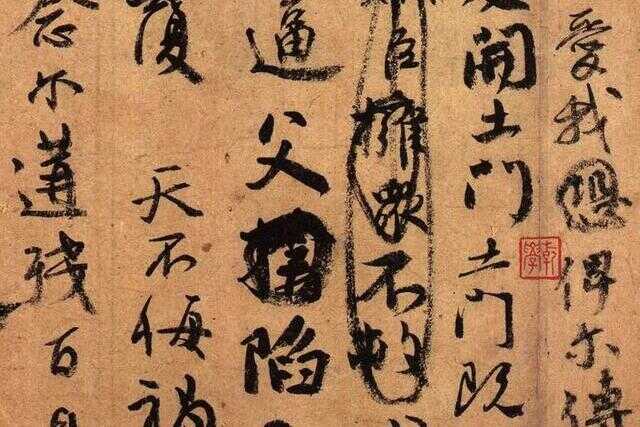 愛我俾尔傳
開土門土門既
臣擁眾不救
逼父陷
覆天不悔禍
念尔遘殘百身